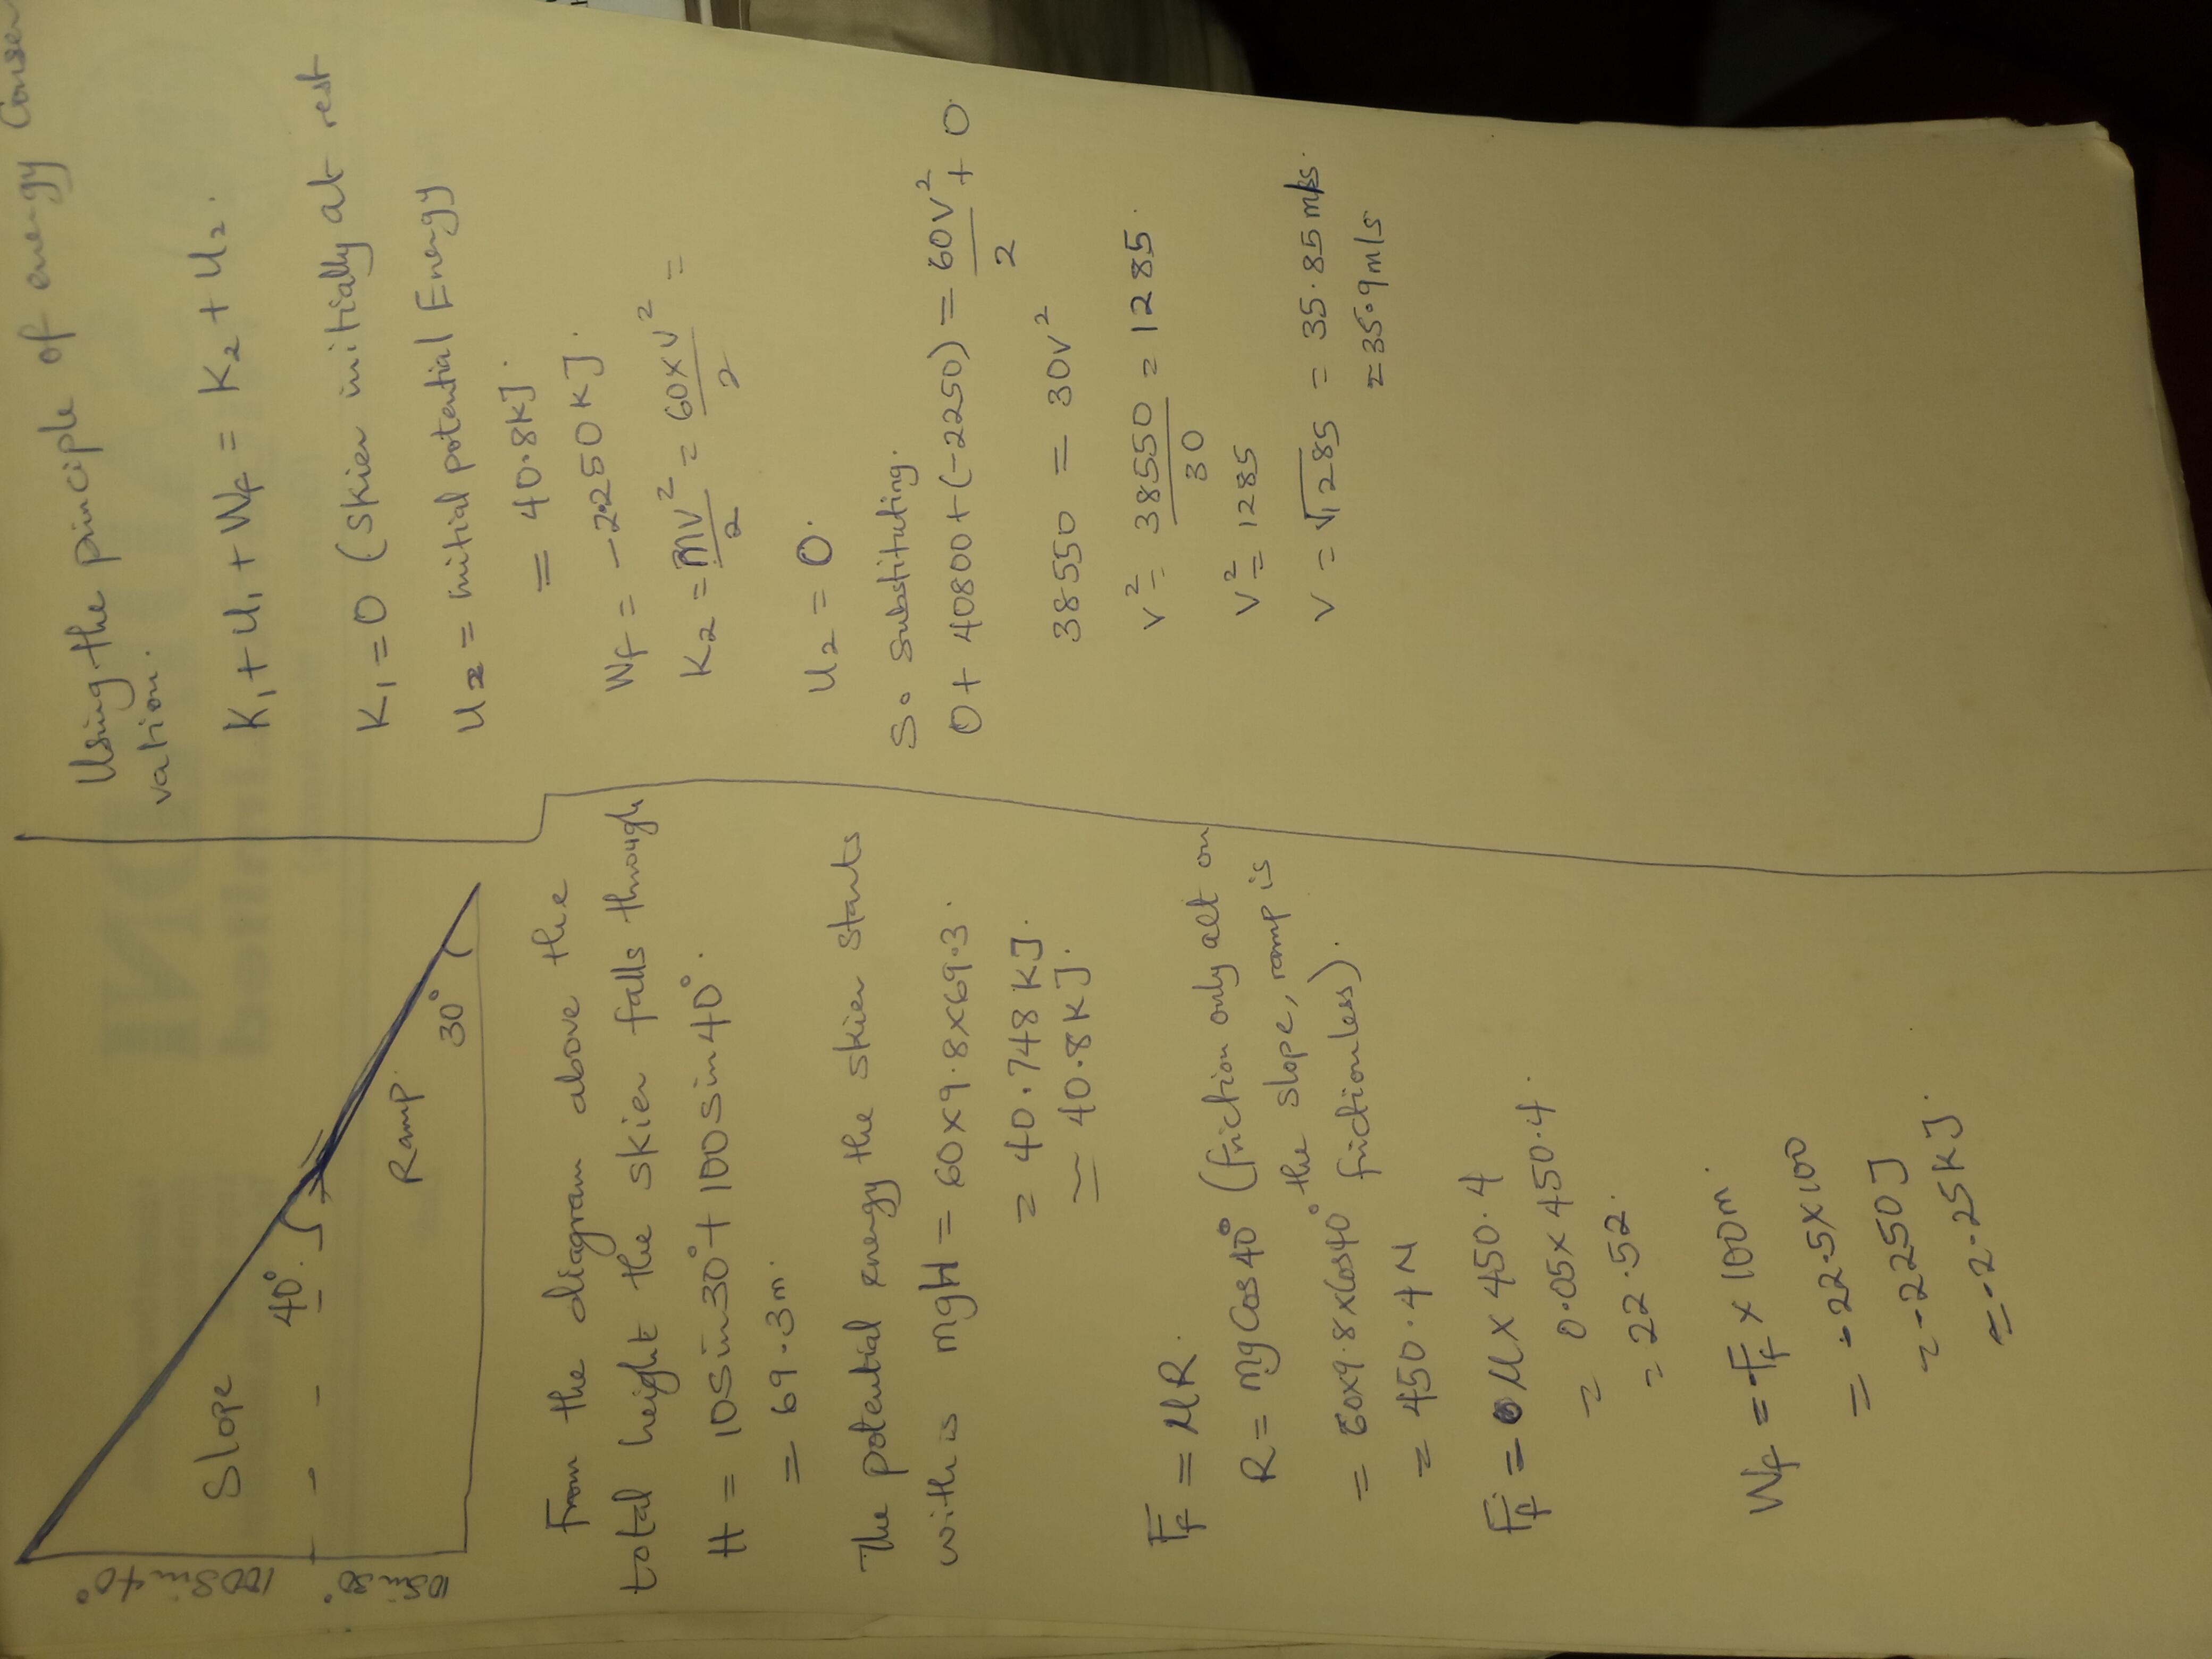 Slope
40°
100Sin40°
10Sin30°
Ramp.
30°
From the diagram above the
total height the skier falls through
H = 10Sin30° + 100Sin40°.
= 69.3m.
The potential energy the skier starts
with is mgH = 60x9.8x69.3.
= 40.748KJ.
≃ 40.8KJ.
Ff = μR.
R = mgCos40° (friction only act on
the slope, ramp is
= 60x9.8xCos40° frictionless).
= 450.4N
Ff = μ x 450.4
= 0.05x450.4.
= 22.52.
Wf = -Ff x 100m.
= -22.5x100
= -2250J
= -2.25KJ.
Using the principle of energy Conser
vation.
K₁ + U₁ + Wf = K₂ + U₂.
K₁ = 0 (skier initially at rest
= initial potential Energy
= 40.8KJ.
Wf = -2.250KJ.
K₂ = mv²/2 = 60xv²/2 =
U₂ = 0.
So substituting.
0 + 40800+(-2250) = 60v²/2 + 0.
38550 = 30v²
v² = 38550/30 = 1285.
v² = 1285
v = √1285 = 35.85m/s.
= 35.9m/s